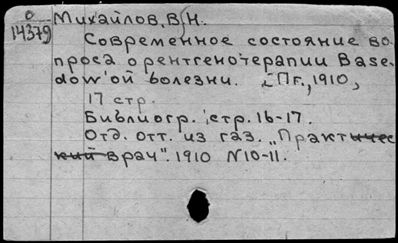 0
14379
Михайлов, В.Н.
Современное состояние во-
проса о рентгенотерапии Base-
dow'ой болезни. [Пг., 1910,
17 стр.
Библиогр.: стр. 16-17.
Отд. отт. из газ. „Практичес-
кий врач". 1910 N10-11.